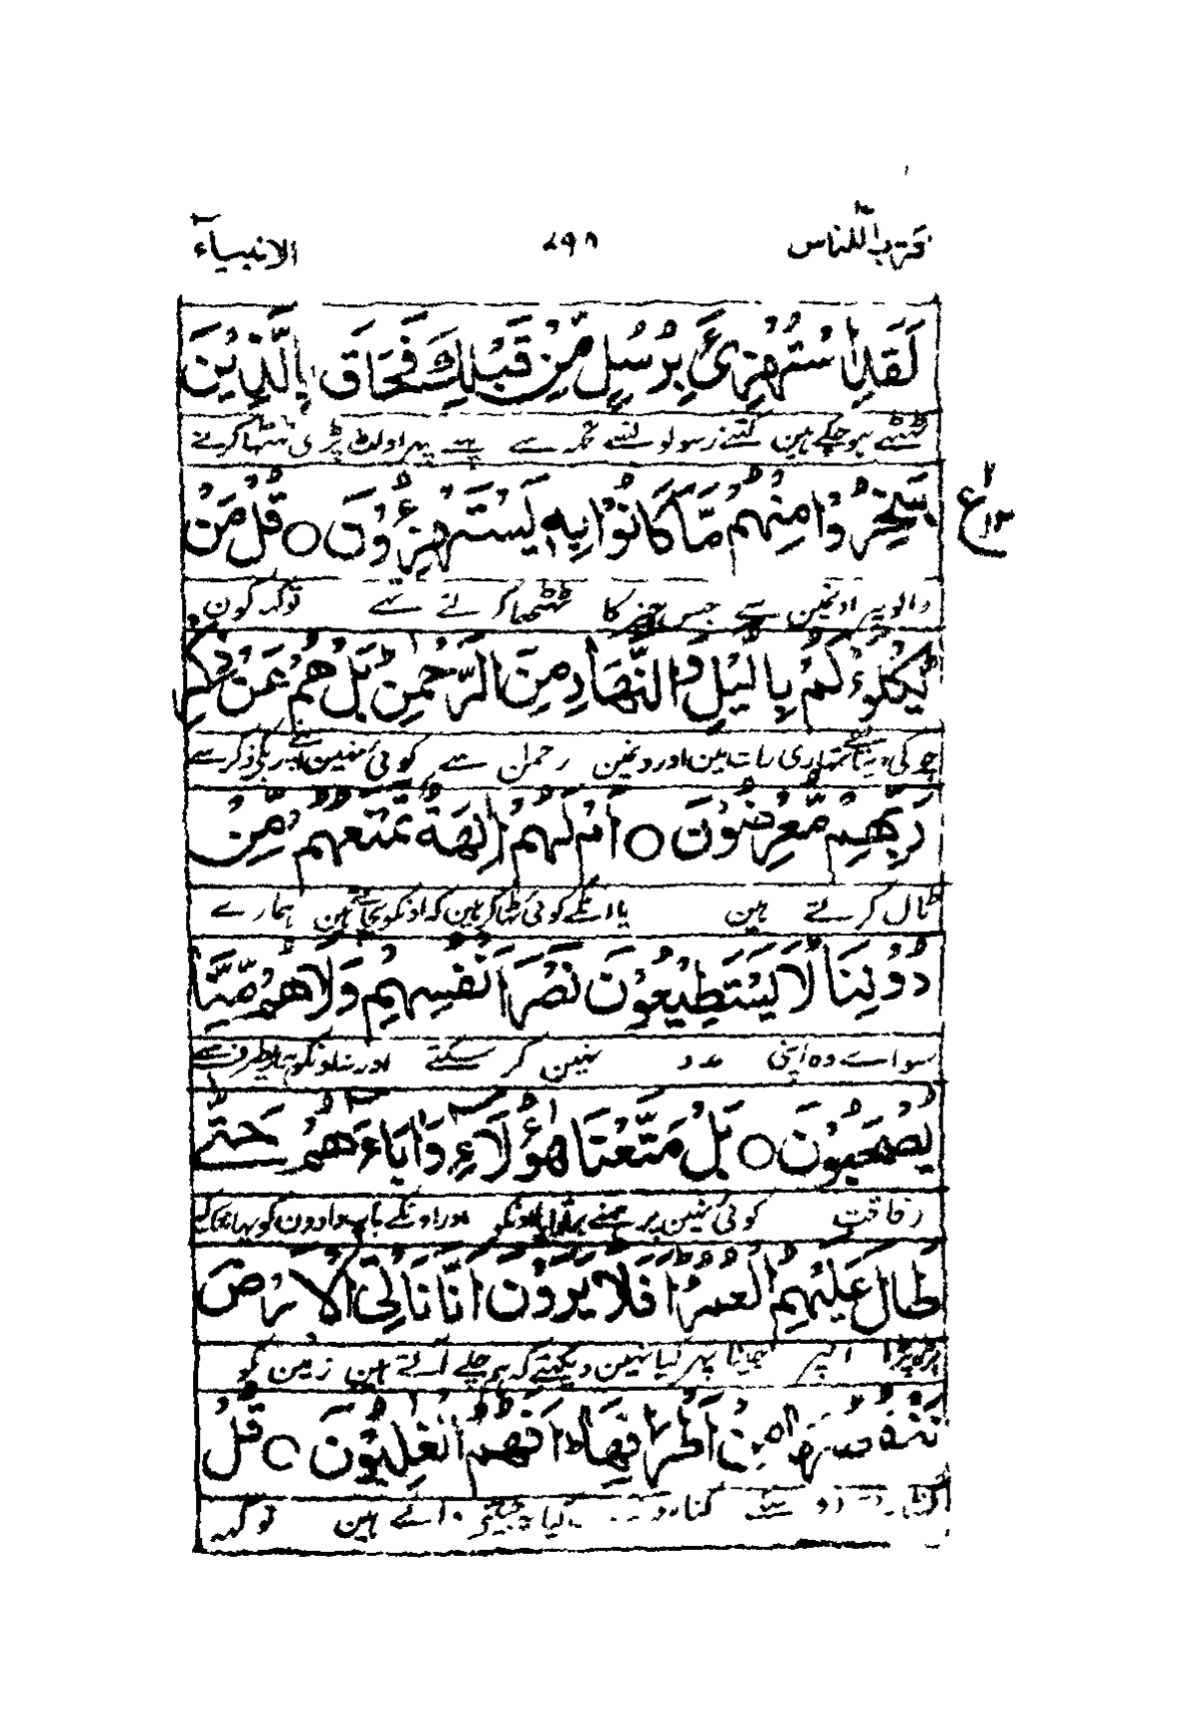 اقترب للناس ٤٩٨ الانبياء
لَقَدِ اسْتُهْزِئَ بِرُسُلٍ مِّنْ قَبْلِكَ فَحَاقَ بِالَّذِيْنَ
ٹھٹھے ہو چکے ہین کتنے رسولونسے تجھ سے پہلے پہر اولٹ پڑی ٹھٹھا کرنے
سَخِرُوْا مِنْهُمْ مَّا كَانُوْا بِهٖ يَسْتَهْزِءُوْنَ ○ قُلْ مَنْ
ع
والو پر اونمین سے جس چیز کا ٹھٹھا کرتے تھے توکہ کون
يَّكْلَؤُكُمْ بِالَّيْلِ وَالنَّهَارِ مِنَ الرَّحْمٰنِ بَلْ هُمْ عَنْ ذِكْرِ
چوکی دیتا ہے تمہاری رات مین اور دنمین رحمان سے کوئی نہین اپنے رب کے ذکر سے
رَبِّهِمْ مُّعْرِضُوْنَ ○ اَمْ لَهُمْ اٰلِهَةٌ تَمْنَعُهُمْ مِّنْ
ٹال کرتے ہین یا انکے کوئی ٹھاکر ہین کہ اونکو بچاتے ہین ہمارے
دُوْنِنَا لَا يَسْتَطِيْعُوْنَ نَصْرَ اَنْفُسِهِمْ وَلَا هُمْ مِّنَّا
سواے وہ اپنی مدد نہین کر سکتے اور نہ اونکو ہماری طرف سے
يُصْحَبُوْنَ ○ بَلْ مَتَّعْنَا هٰٓؤُلَآءِ وَاٰبَآءَهُمْ حَتّٰى
رفاقت کوئی نہین پر ہمنے اونکو اور اونکے باپ دادون کو یہانتک
طَالَ عَلَيْهِمُ الْعُمُرُ اَفَلَا يَرَوْنَ اَنَّا نَاْتِى الْاَرْضَ
انپر جینا پہر کیا نہین دیکھتے کہ ہم چلے آتے ہین زمین کو
نَنْقُصُهَا مِنْ اَطْرَافِهَا اَفَهُمُ الْغٰلِبُوْنَ ○ قُلْ
کیا جیتنے والے ہین توکہہ